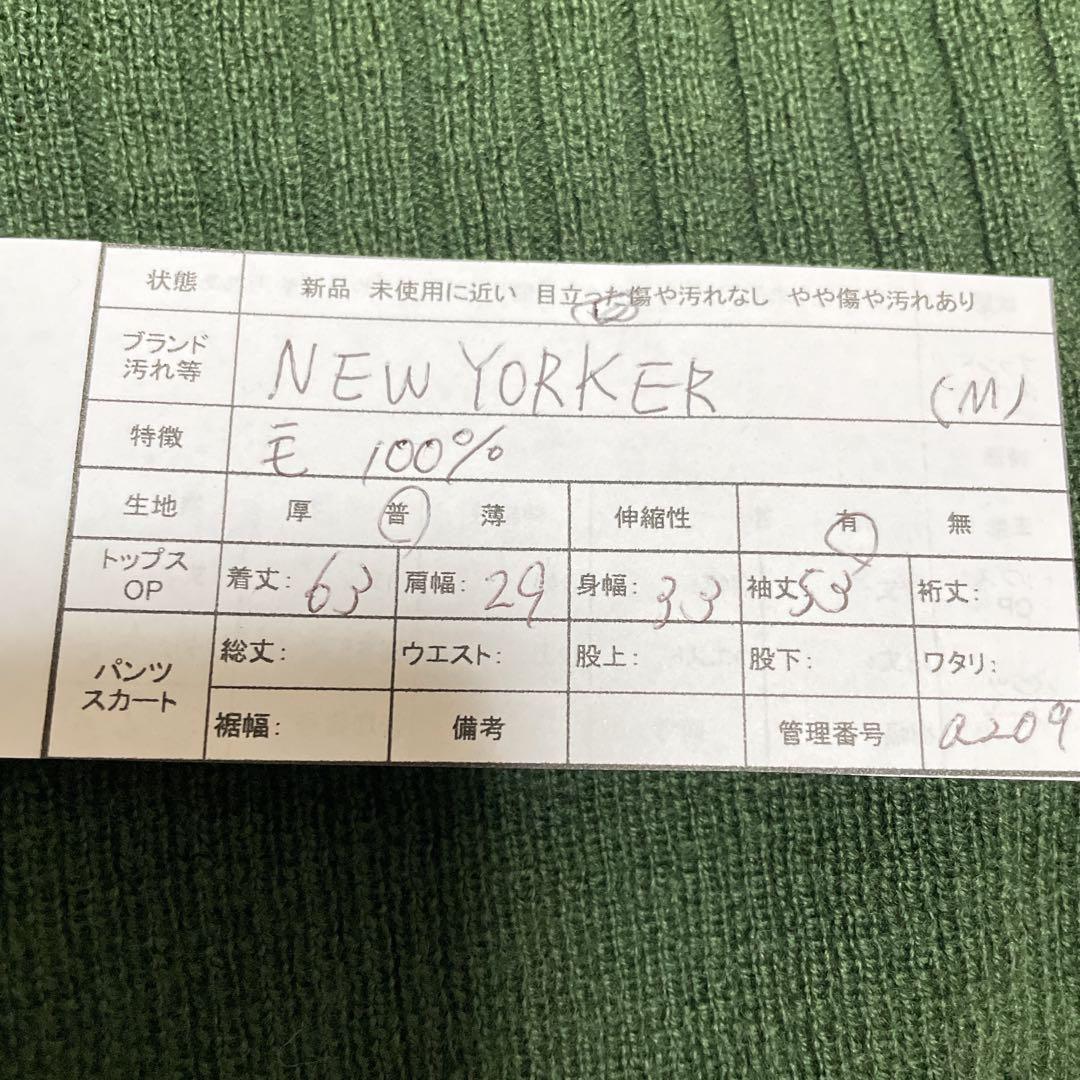 状態 新品 未使用に近い 目立った傷や汚れなし やや傷や汚れあり
ブランド 汚れ等 NEW YORKER (M)
特徴 毛 100%
生地 厚 普 薄 伸縮性 有 無
トップス OP 着丈: 63 肩幅: 29 身幅: 33 袖丈: 53 裄丈:
パンツ スカート 総丈: ウエスト: 股上: 股下: ワタリ:
裾幅: 備考 管理番号 a209